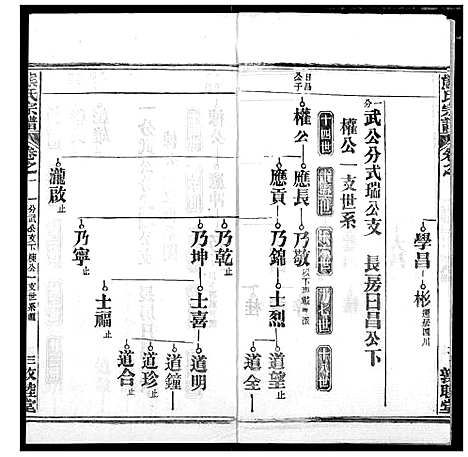 熊氏宗譜
卷之一
學昌
彬
遷居四川
一分武公分式瑞公支 長房日昌公下
權公一支世系
十四世
日昌公子
權公
應長
乃敬
應貢
乃錦
士烈
道望 止
道全
乃乾 止
乃坤
士喜
道明
道鐘 止
道珍 止
道合 止
乃寧 止
士福 止
瀧啟 止
熊氏宗譜
卷之一
一分武公支下權公一支世系
三
敦睦堂